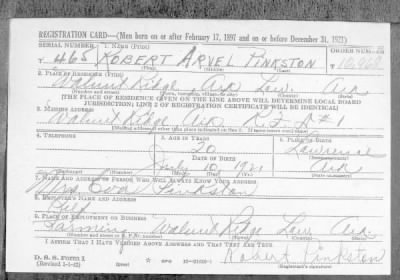 REGISTRATION CARD—(Men born on or after February 17, 1897 and on or before December 31, 1921)
SERIAL NUMBER 1. NAME (Print) ORDER NUMBER
T 465 ROBERT ARVEL PINKSTON T 10,968
(First) (Middle) (Last)
2. PLACE OF RESIDENCE (Print)
Walnut Ridge Ark Law. Ark
(Number and street) (Town, township, village, or city) (County) (State)
[THE PLACE OF RESIDENCE GIVEN ON THE LINE ABOVE WILL DETERMINE LOCAL BOARD
JURISDICTION; LINE 2 OF REGISTRATION CERTIFICATE WILL BE IDENTICAL]
3. MAILING ADDRESS
Walnut Ridge Ark. R.F.D #1
[Mailing address if other than place indicated on line 2. If same insert word same]
4. TELEPHONE 5. AGE IN YEARS 6. PLACE OF BIRTH
20 Lawrence
DATE OF BIRTH (Town or county)
July 10 1921 Ark
(Exchange) (Number) (Mo.) (Day) (Yr.) (State or country)
7. NAME AND ADDRESS OF PERSON WHO WILL ALWAYS KNOW YOUR ADDRESS
Mrs. Pinkston
8. EMPLOYER'S NAME AND ADDRESS
9. PLACE OF EMPLOYMENT OR BUSINESS
Farming Walnut Ridge Law Ark.
(Number and street or R. F. D. number) (Town) (County) (State)
I AFFIRM THAT I HAVE VERIFIED ABOVE ANSWERS AND THAT THEY ARE TRUE.
D. S. S. Form 1 Robert Pinkston
(Revised 1-1-42) (over) (Registrant's signature)